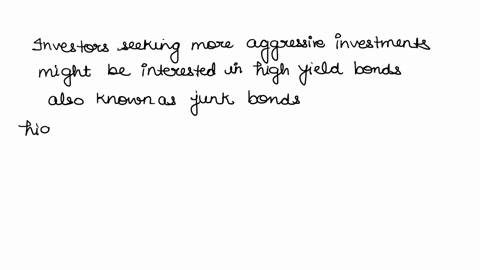 Investors seeking more aggressive investments
might be interested in high yield bonds
also known as junk bonds
hio